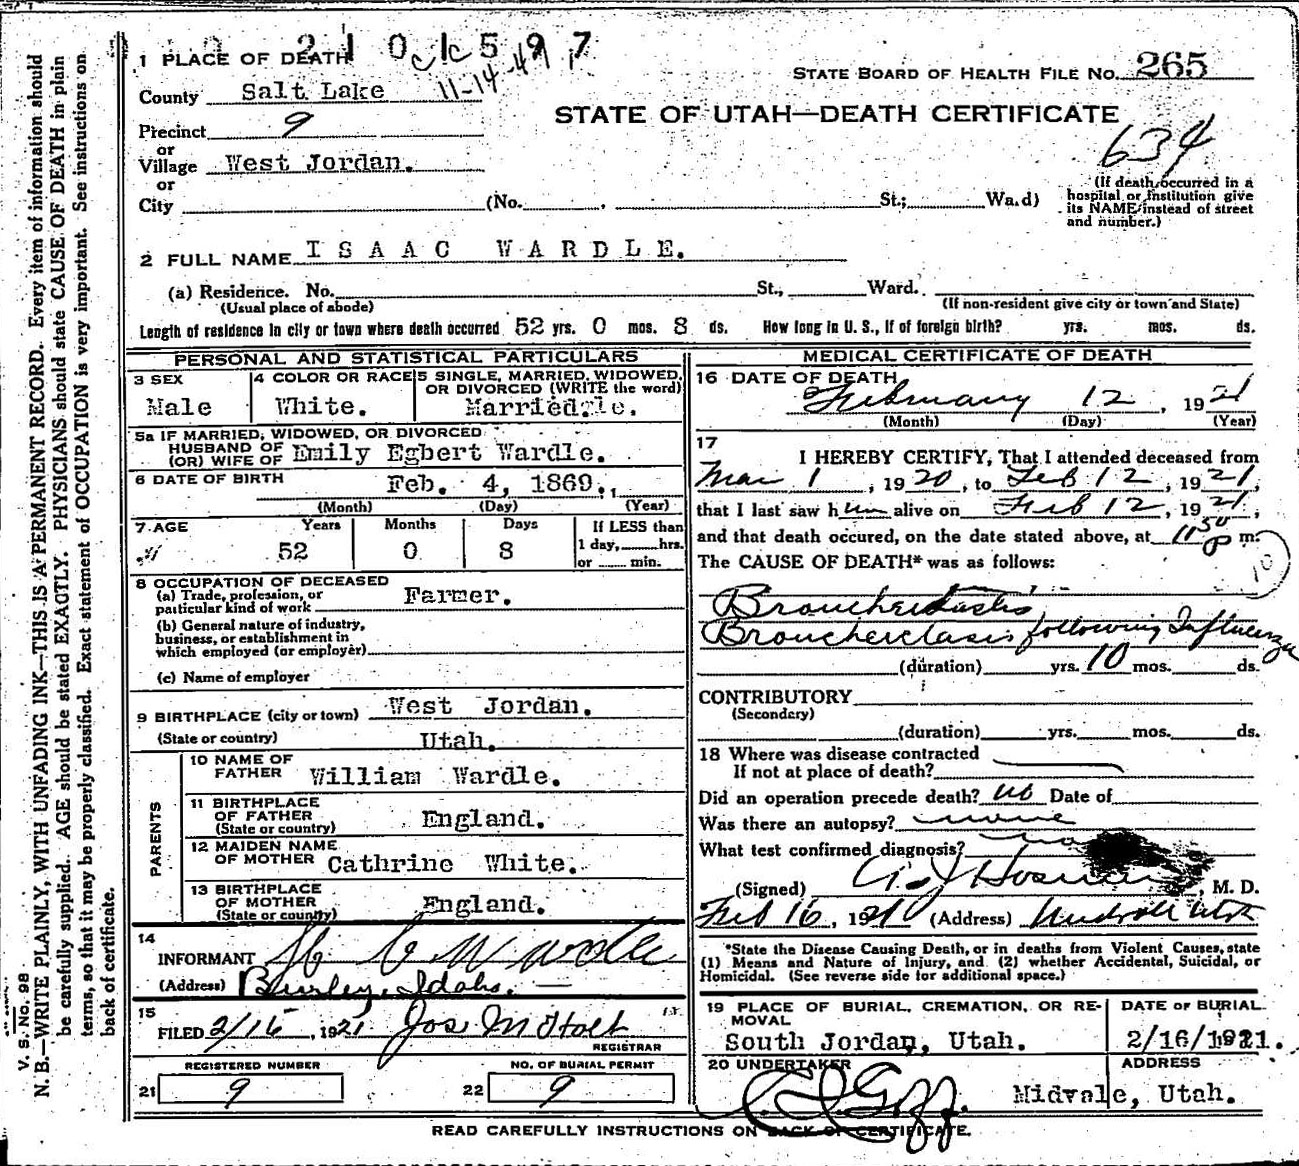 2101597
1 PLACE OF DEATH
cc 11-14-49
STATE BOARD OF HEALTH FILE NO. 265
County Salt Lake
STATE OF UTAH—DEATH CERTIFICATE
Precinct 9
634
or
Village West Jordan.
or
City (No. , St.; Wa.d)
(If death occurred in a
hospital or institution give
its NAME instead of street
and number.)
2 FULL NAME ISAAC WARDLE.
(a) Residence. No. St., Ward.
(Usual place of abode) (If non-resident give city or town and State)
Length of residence in city or town where death occurred 52 yrs. 0 mos. 8 ds. How long in U. S., if of foreign birth? yrs. mos. ds.
PERSONAL AND STATISTICAL PARTICULARS
3 SEX
Male
4 COLOR OR RACE
White.
5 SINGLE, MARRIED, WIDOWED,
OR DIVORCED (WRITE the word)
Married
5a IF MARRIED, WIDOWED, OR DIVORCED
HUSBAND OF
(OR) WIFE OF Emily Egbert Wardle.
6 DATE OF BIRTH Feb. 4, 1869.
(Month) (Day) (Year)
7 AGE Years Months Days If LESS than
52 0 8 1 day, hrs.
or min.
8 OCCUPATION OF DECEASED
(a) Trade, profession, or
particular kind of work Farmer.
(b) General nature of industry,
business, or establishment in
which employed (or employer)
(c) Name of employer
9 BIRTHPLACE (city or town) West Jordan.
(State or country) Utah.
PARENTS
10 NAME OF
FATHER William Wardle.
11 BIRTHPLACE
OF FATHER
(State or country) England.
12 MAIDEN NAME
OF MOTHER Cathrine White.
13 BIRTHPLACE
OF MOTHER
(State or country) England.
14
INFORMANT Wardle
(Address) Burley, Idaho.
15
FILED 2/16, 1921 Jos M Holt
REGISTRAR
REGISTERED NUMBER
21 9
NO. OF BURIAL PERMIT
22 9
MEDICAL CERTIFICATE OF DEATH
16 DATE OF DEATH
February 12, 1921
(Month) (Day) (Year)
17
I HEREBY CERTIFY, That I attended deceased from
Mar 1, 1920, to Feb 12, 1921,
that I last saw him alive on Feb 12, 1921,
and that death occured, on the date stated above, at 11 50 p m.
The CAUSE OF DEATH* was as follows:
10
Bronchiectasis following Influenza
(duration) yrs. 10 mos. ds.
CONTRIBUTORY
(Secondary)
(duration) yrs. mos. ds.
18 Where was disease contracted
If not at place of death?
Did an operation precede death? no Date of
Was there an autopsy? none
What test confirmed diagnosis?
(Signed) , M. D.
Feb 16, 1921 (Address) Midvale Utah
*State the Disease Causing Death, or in deaths from Violent Causes, state
(1) Means and Nature of Injury, and (2) whether Accidental, Suicidal, or
Homicidal. (See reverse side for additional space.)
19 PLACE OF BURIAL, CREMATION, OR RE-
MOVAL
South Jordan, Utah.
DATE OF BURIAL
2/16/1921.
20 UNDERTAKER
Goff.
ADDRESS
Midvale, Utah.
READ CAREFULLY INSTRUCTIONS ON BACK OF CERTIFICATE.
V. S. No. 98
N. B.—WRITE PLAINLY, WITH UNFADING INK—THIS IS A PERMANENT RECORD. Every item of information should
be carefully supplied. AGE should be stated EXACTLY. PHYSICIANS should state CAUSE OF DEATH in plain
terms, so that it may be properly classified. Exact statement of OCCUPATION is very important. See instructions on
back of certificate.